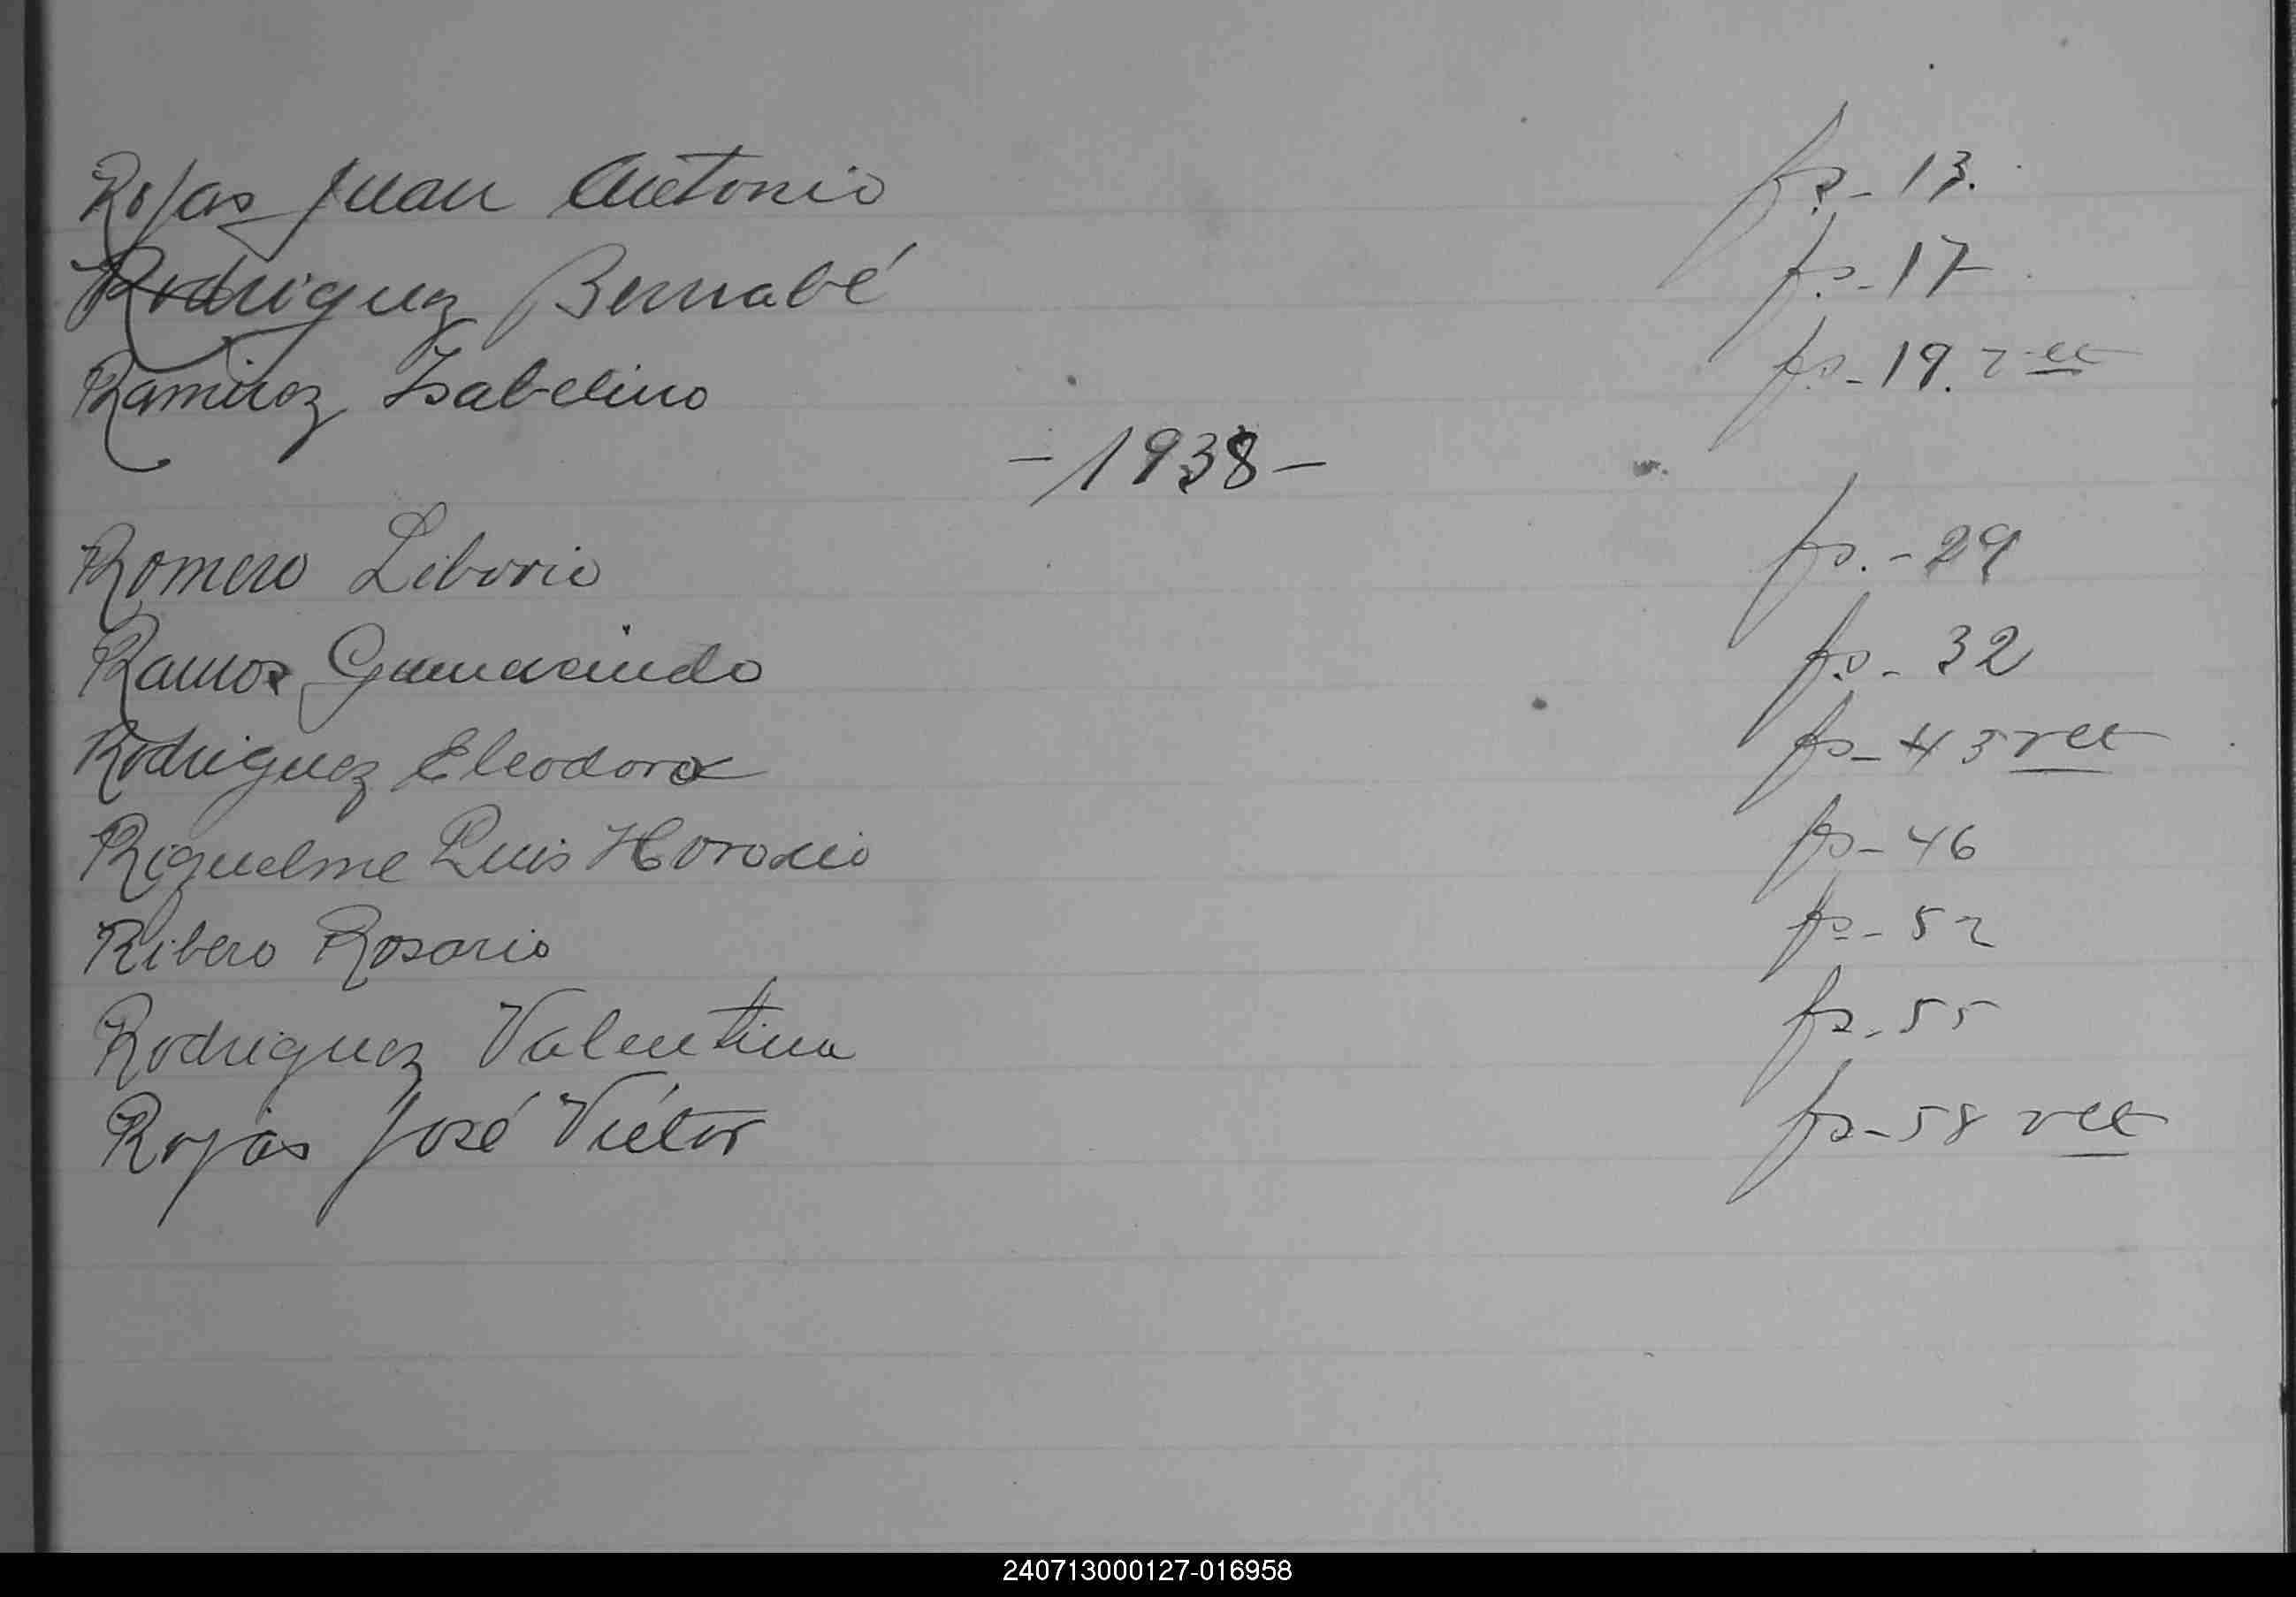 Rojas Juan Antonio fs - 13.
Rodriguez Bernabé fs - 17
Ramirez Isabelino fs - 19. vlt
- 1938 -
Romero Liborio fs. - 29
Ramos Gumacindo fs - 32
Rodriguez Eleodora fs - 43 vlt
Riquelme Luis Horacio fs - 46
Ribero Rosario fs - 52
Rodriguez Valentina fs - 55
Rojas José Victor fs - 58 vlt
240713000127-016958